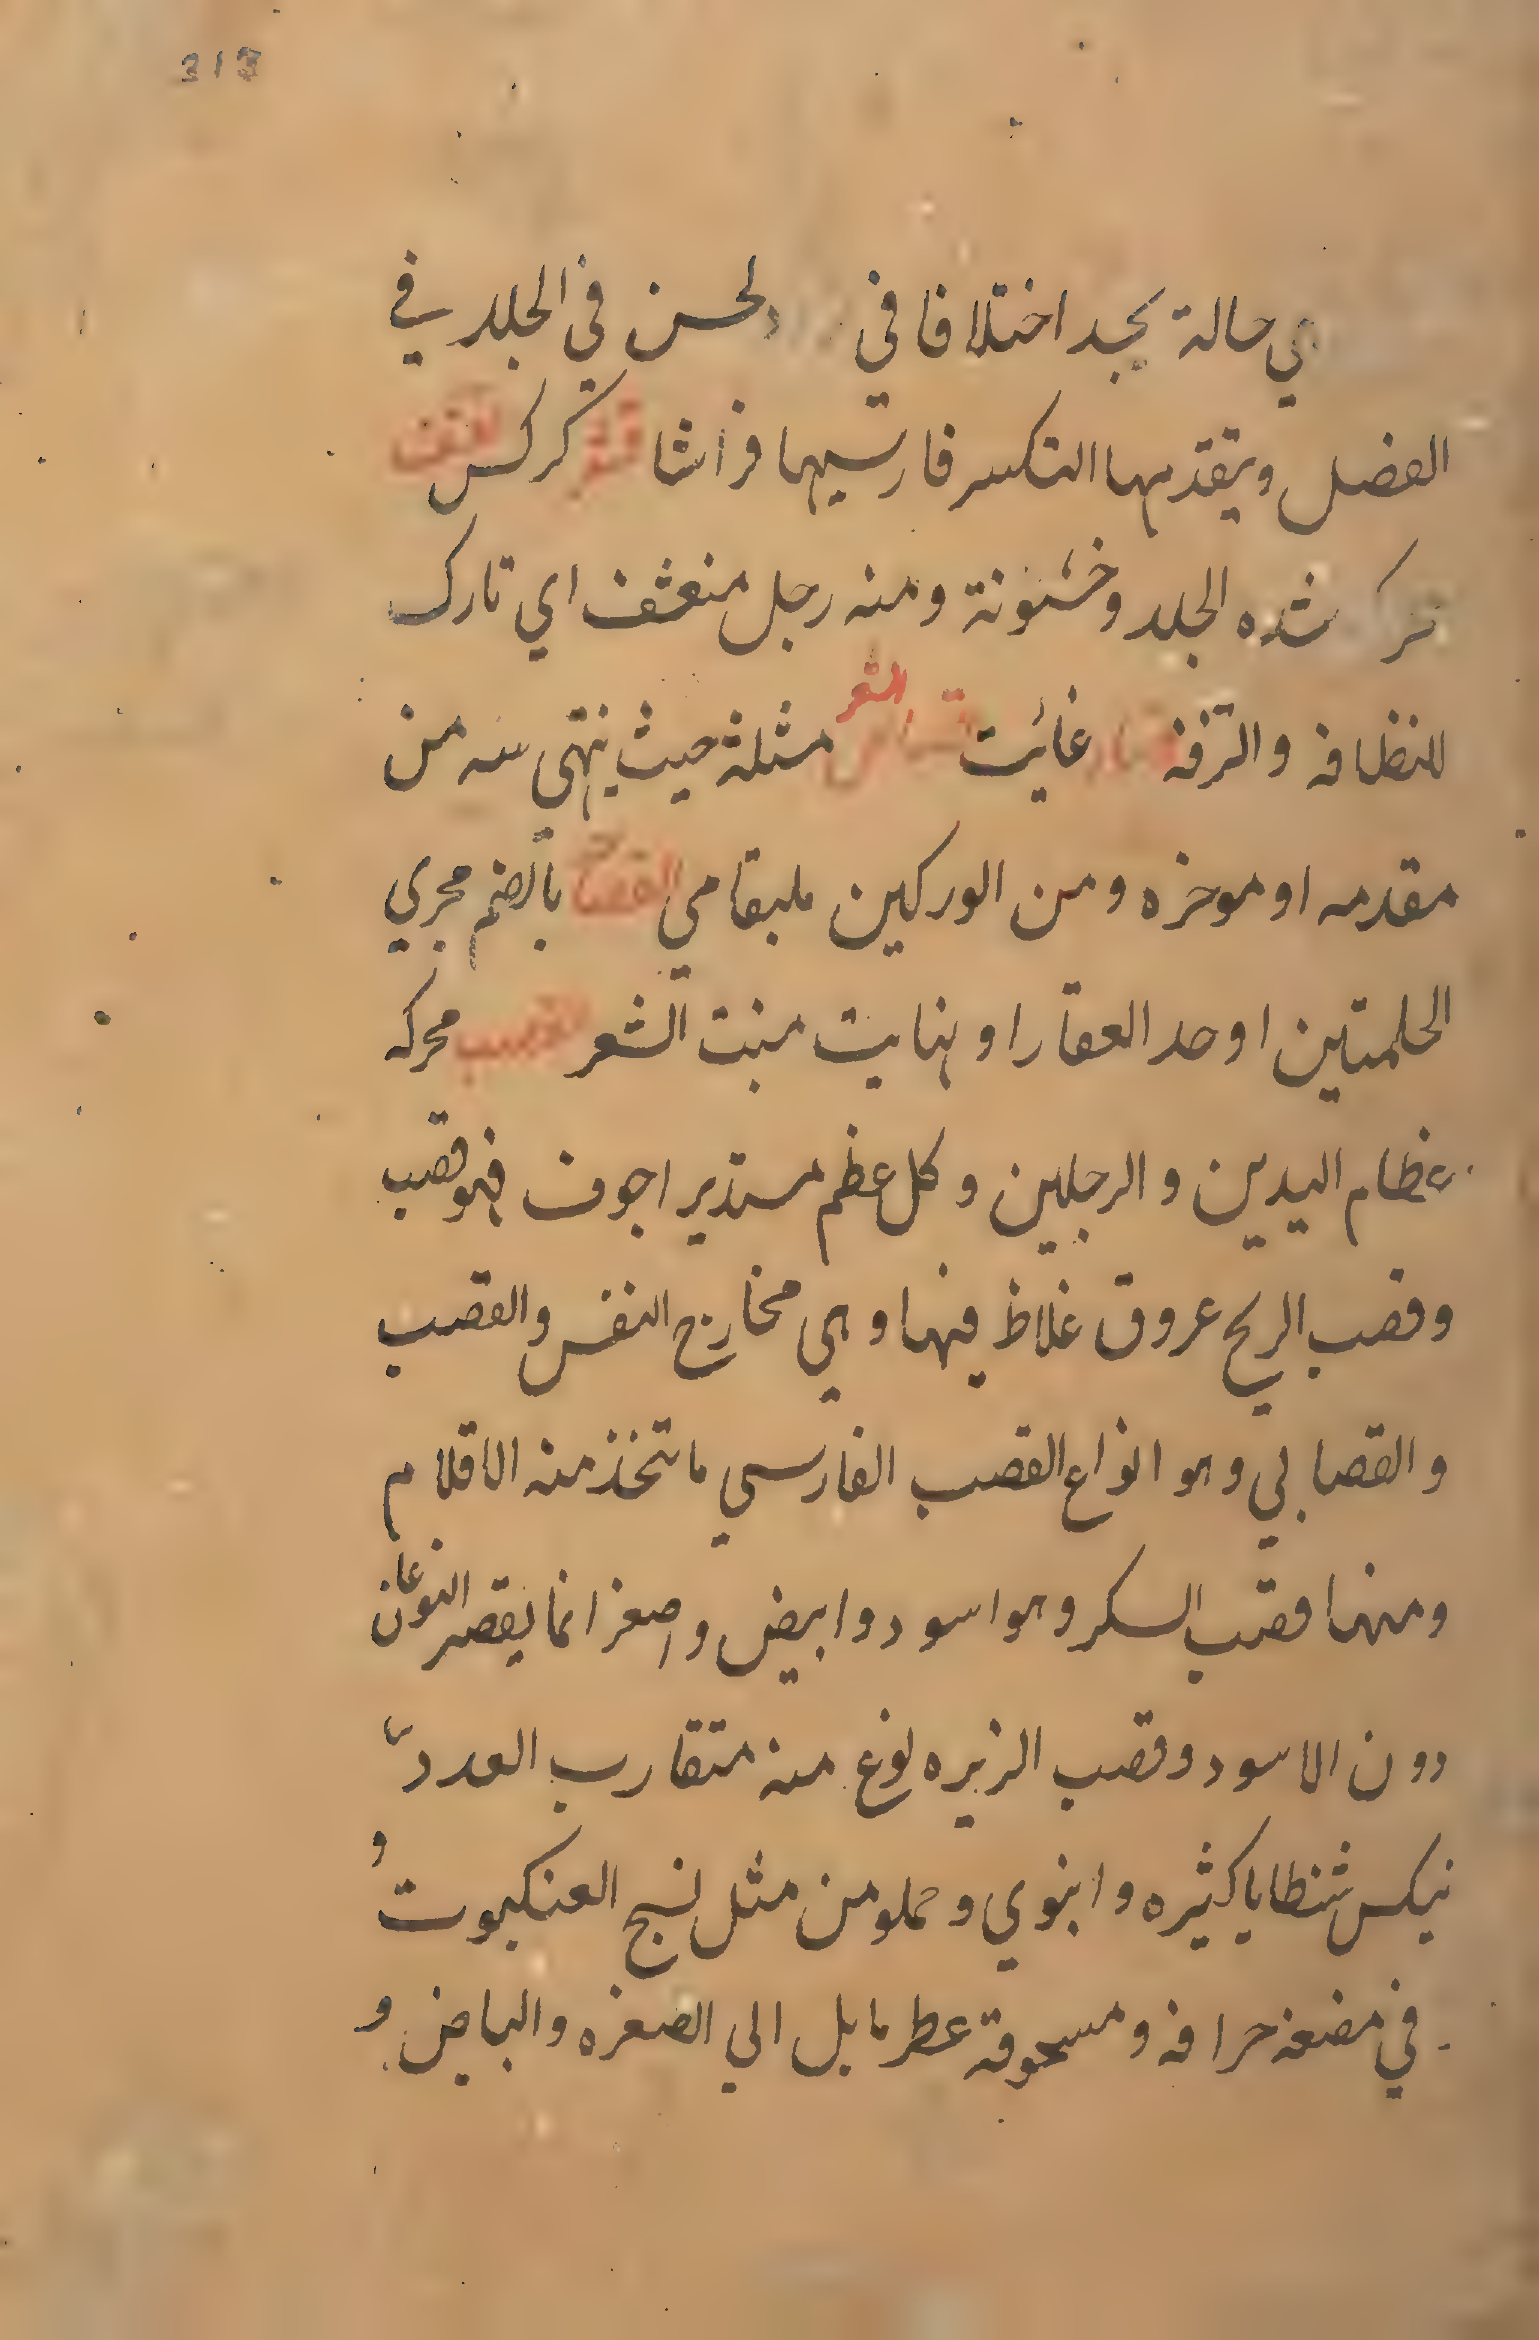 313
هي حالة يجد اختلافا في لحسن في الجلد في
العضل ويتقدمها التكسر فارسيها فراشا قشر كركس القشف
محركه شده الجلد وخشونة ومنه رجل منعشف اي تارك
للنظافه والترفه غايت قصاص الشعر مثلثة حيث ينتهي منه من
مقدمه او موخره ومن الوركين ملبقامي القصاص بالضم مجري
الحلمتين او حد العقار او نهايت منبت الشعر القصب محركه
عظام اليدين والرجلين وكل عظم مستدير اجوف فهو قصب
وقصب الريح عروق غلاظ فيها وهي مخارج النفس والقصب
والقصابي وهو انواع القصب الفارسي ما تتخذ منه الاقلام
ومنها قصب السكر وهو اسود وابيض واصفر انما يقصر النوعان
دون الاسود وقصب الزيره نوع منه متقارب العدد
نيكس شنطايا كثيره وابنوي ومملو من مثل نسج العنكبوت و
في مضغه حرافه ومسحوقه عطر مايل الي الصفره والبياض و